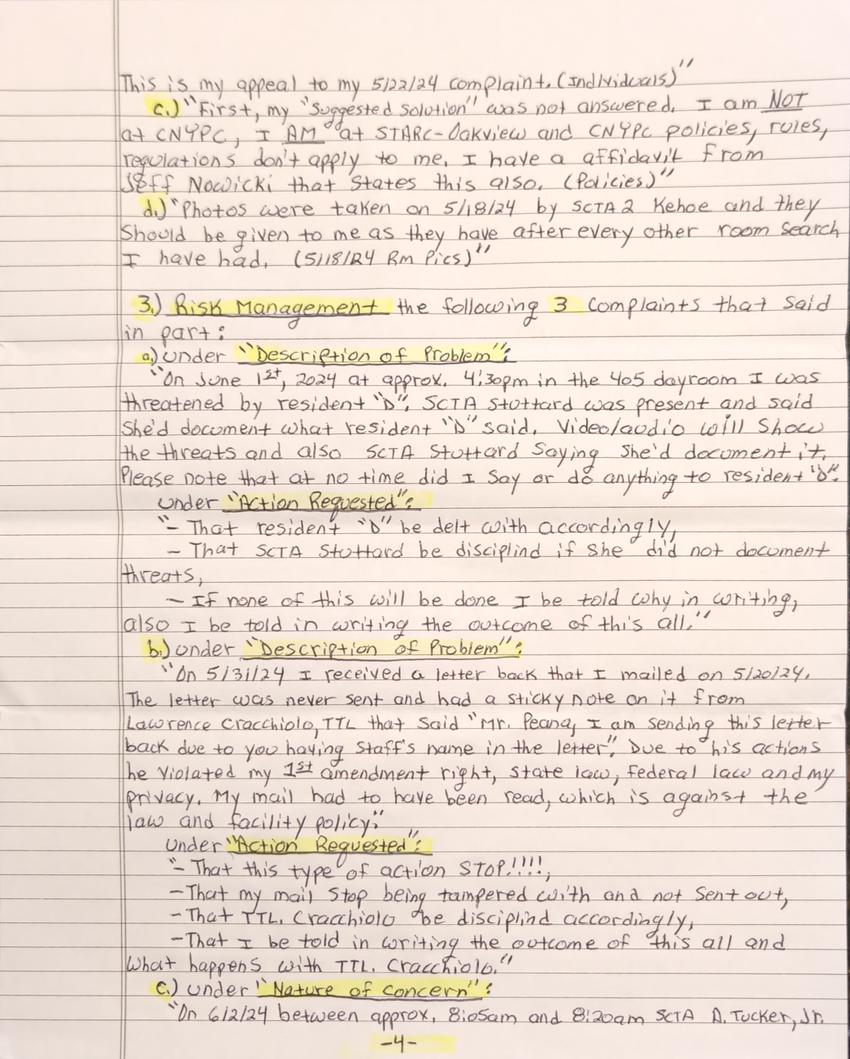 This is my appeal to my 5/22/24 complaint. (Individuals)"
c.) "First, my "Suggested Solution" was not answered. I am NOT
at CNYPC, I AM at STARC-Oakview and CNYPC policies, rules,
regulations don't apply to me. I have a affidavit from
Jeff Nowicki that States this also. (Policies)"
d.) "Photos were taken on 5/18/24 by SCTA 2 Kehoe and they
Should be given to me as they have after every other room search
I have had. (5/18/24 Rm Pics)"
3.) Risk Management the following 3 Complaints that Said
in part:
a.) under "Description of Problem":
"On June 1st, 2024 at approx. 4:30pm in the 405 dayroom I was
threatened by resident "D". SCTA Stottard was present and said
She'd document what resident "D" said. Video/audio will Show
the threats and also SCTA Stottard Saying She'd document it.
Please note that at no time did I Say or do anything to resident "D".
under "Action Requested":
"- That resident "D" be delt with accordingly,
- That SCTA Stottard be disciplind if She did not document
threats,
- If none of this will be done I be told why in writing,
also I be told in writing the outcome of this all."
b.) under "Description of Problem":
"On 5/31/24 I received a letter back that I mailed on 5/20/24.
The letter was never sent and had a sticky note on it from
Lawrence Cracchiolo, TTL that said "Mr. Peana, I am sending this letter
back due to you having Staff's name in the letter". Due to his actions
he violated my 1st amendment right, State law, federal law and my
privacy. My mail had to have been read, which is against the
law and facility policy."
under "Action Requested":
"- That this type of action STOP!!!!,
- That my mail Stop being tampered with and not Sent out,
- That TTL. Cracchiolo be disciplind accordingly,
- That I be told in writing the outcome of this all and
what happens with TTL. Cracchiolo."
c.) under "Nature of Concern":
"On 6/2/24 between approx. 8:05am and 8:20am SCTA D. Tucker, Jr.
-4-